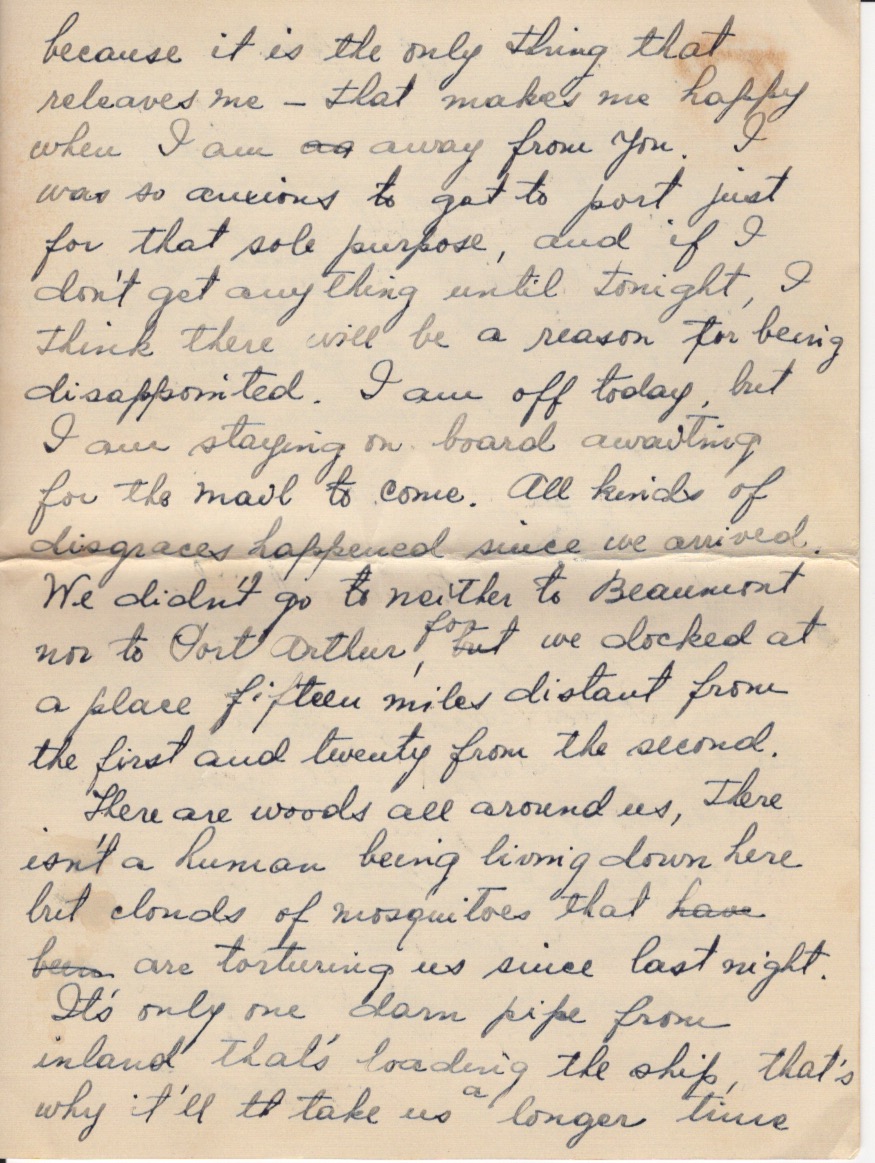 because it is the only thing that
releaves me – that makes me happy
when I am aa away from you. I
was so anxious to get to port just
for that sole purpose, and if I
don't get anything until tonight, I
think there will be a reason for being
disappointed. I am off today, but
I am staying on board awaiting
for the mail to come. All kinds of
disgraces happened since we arrived.
We didn't go to neither to Beaumont
nor to Port Arthur, for but we docked at
a place fifteen miles distant from
the first and twenty from the second.
There are woods all around us, there
isn't a human being living down here
but clouds of mosquitoes that have
been are torturing us since last night.
It's only one darn pipe from
inland that's loading the ship, that's
why it'll tt take us a longer time